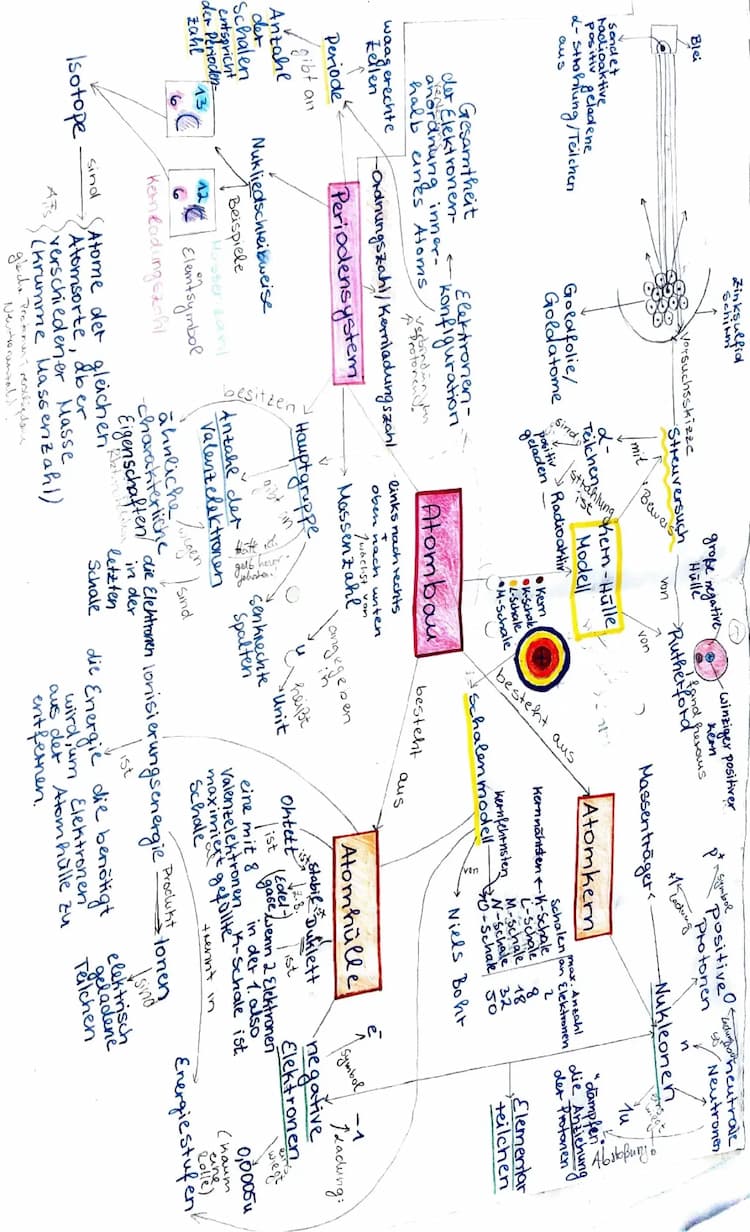 Blei
sendet
radioaktive
positiv geladene
α-Strahlung/Teilchen
aus
Zinksulfid
schirm
Goldfolie/
Goldatome
Versuchsskizze
Streuversuch
mit
Bewers
α-
Teilchen
sind
positiv
geladen
Strahlung
ist
Radioaktiv
Kern-Hülle
Modell
von
von
Ruthetford
fand heraus
große negative
Hülle
winziger positiver
Kern
Anzahl
der
Schalen
entspricht
der Perioden-
zahl
gibt an
Periode
waagerechte
Zeilen
Gesamtheit
der Elektronen-
anordnung inner-
halb eines Atoms
Elektronen-
konfiguration
-Ordnungszahl/Kernladungszahl
Periodensystem
Nukliedschreibweise
Beispiele
13
6 C
12
6 C
Massenzahl
Elemtsymbol
Kernladungszahl
Isotope
sind
Atome der gleichen
Atomsorte, aber
verschiedener Masse
(krumme Massenzahl)
besitzen
Hauptgruppe
gibt an
Anzahl der
Valenzelektronen
sind
ähnliche
charakteritiche
Eigenschaften
die Elektronen
in der
letzten
Schale
senkrechte
Spalten
links nach rechts
+
oben nach unten
wächst von
Massenzahl
angegeben
in
u
heißt
Unit
Atombau
Kern
K-Schale
L-Schale
M-Schale
besteht aus
besteht aus
Schalenmodell
von
Niels Boht
kernnähsten
kernfehrnsten
Schalen
K-Schale
L-Schale
M-Schale
N-Schale
O-Schale
max. Anzahl
an Elektronen
2
8
18
32
50
Atomkern
Massenträger
Nukleonen
Positive
Protonen
Symbol
p+
Ladung
+1
neutrale
Neutronen
0
n
1u
"dämpfen"
die Anziehung
der Protonen
Abstoßung
Elementar
teilchen
Atomhülle
Oktett
ist
eine mit 8
Valenzelektronen
maximiert gefüllte
Schale
stabil
z.B.
(Edel-
gase)
Duklett
ist
wenn 2 Elektronen
in der 1. also
K-Schale ist
negative
Elektronen
Symbol
e-
Ladung:
-1
wiegt
0,0005u
(kaum
eine
Rolle)
Ionisierungsenergie
ist
die Energie die benötigt
wird, um Elektronen
aus der Atomhülle zu
entfernen.
Produkt
Ionen
sind
elektrisch
geladene
Teilchen
trennt in
Energiestufen